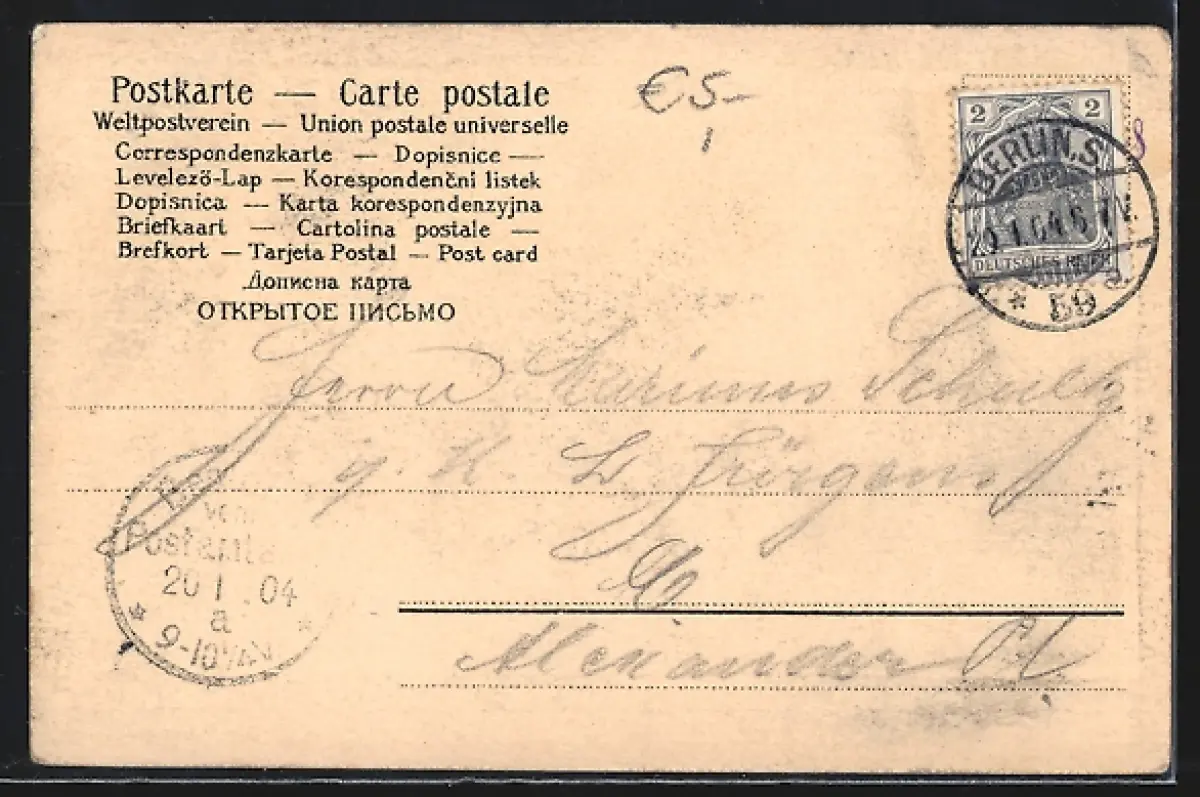 Postkarte — Carte postale
Weltpostverein — Union postale universelle
Correspondenzkarte — Dopisnice —
Levelező-Lap — Korespondenční listek
Dopisnica — Karta korespondenzyjna
Briefkaart — Cartolina postale —
Brefkort — Tarjeta Postal — Post card
Дописна карта
ОТКРЫТОЕ ПИСЬМО
€5-
2 2
DEUTSCHES REICH
BERLIN.S.
1.04.6-7
* 59
Herrn Marinus Schultz
Jürgens
Alexander
vom
Postamte
20 1 .04
a
* 9-10